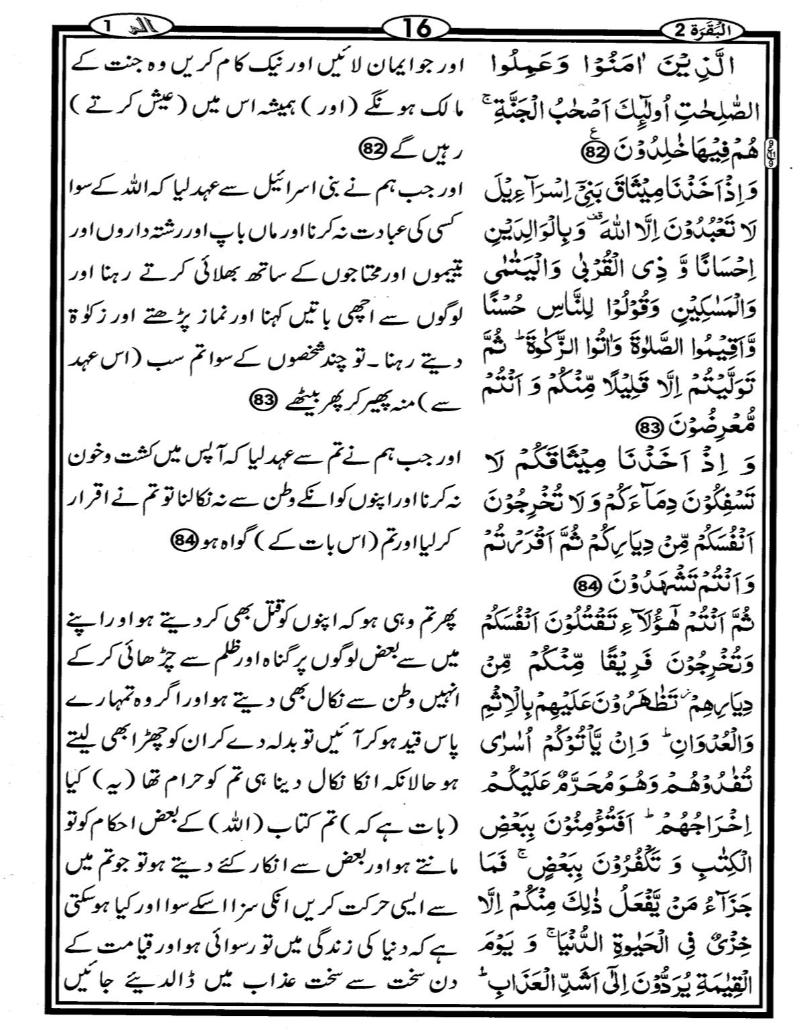 البقرة 2
16
الٓمّٓ 1
الَّذِيۡنَ اٰمَنُوۡا وَعَمِلُوا
الصّٰلِحٰتِ اُولٰٓئِكَ اَصۡحٰبُ الۡجَنَّةِ ۚ
هُمۡ فِيۡهَا خٰلِدُوۡنَ ع 82
وَاِذۡ اَخَذۡنَا مِيۡثَاقَ بَنِىۡٓ اِسۡرَآءِيۡلَ
لَا تَعۡبُدُوۡنَ اِلَّا اللّٰهَ ۟ وَبِالۡوَالِدَيۡنِ
اِحۡسَانًا وَّ ذِى الۡقُرۡبٰى وَالۡيَتٰمٰى
وَالۡمَسٰكِيۡنِ وَقُوۡلُوۡا لِلنَّاسِ حُسۡنًا
وَّاَقِيۡمُوا الصَّلٰوةَ وَاٰتُوا الزَّكٰوةَ ؕ ثُمَّ
تَوَلَّيۡتُمۡ اِلَّا قَلِيۡلًا مِّنۡكُمۡ وَ اَنۡتُمۡ
مُّعۡرِضُوۡنَ 83
وَ اِذۡ اَخَذۡنَا مِيۡثَاقَكُمۡ لَا
تَسۡفِكُوۡنَ دِمَآءَكُمۡ وَلَا تُخۡرِجُوۡنَ
اَنۡفُسَكُمۡ مِّنۡ دِيَارِكُمۡ ثُمَّ اَقۡرَرۡتُمۡ
وَاَنۡتُمۡ تَشۡهَدُوۡنَ 84
ثُمَّ اَنۡتُمۡ هٰٓؤُلَآءِ تَقۡتُلُوۡنَ اَنۡفُسَكُمۡ
وَتُخۡرِجُوۡنَ فَرِيۡقًا مِّنۡكُمۡ مِّنۡ
دِيَارِهِمۡ تَظٰهَرُوۡنَ عَلَيۡهِمۡ بِالۡاِثۡمِ
وَالۡعُدۡوَانِ ؕ وَاِنۡ يَّاۡتُوۡكُمۡ اُسٰرٰى
تُفٰدُوۡهُمۡ وَهُوَ مُحَرَّمٌ عَلَيۡكُمۡ
اِخۡرَاجُهُمۡ ؕ اَفَتُؤۡمِنُوۡنَ بِبَعۡضِ
الۡكِتٰبِ وَ تَكۡفُرُوۡنَ بِبَعۡضٍ ۚ فَمَا
جَزَآءُ مَنۡ يَّفۡعَلُ ذٰلِكَ مِنۡكُمۡ اِلَّا
خِزۡىٌ فِى الۡحَيٰوةِ الدُّنۡيَا ۚ وَ يَوۡمَ
الۡقِيٰمَةِ يُرَدُّوۡنَ اِلٰٓى اَشَدِّ الۡعَذَابِ ؕ
اور جو ایمان لائیں اور نیک کام کریں وہ جنت کے
مالک ہونگے (اور) ہمیشہ اس میں (عیش کرتے)
رہیں گے 82
اور جب ہم نے بنی اسرائیل سے عہد لیا کہ اللہ کے سوا
کسی کی عبادت نہ کرنا اور ماں باپ اور رشتہ داروں اور
یتیموں اور محتاجوں کے ساتھ بھلائی کرتے رہنا اور
لوگوں سے اچھی باتیں کہنا اور نماز پڑھتے اور زکوٰۃ
دیتے رہنا ۔ تو چند شخصوں کے سوا تم سب (اس عہد
سے) منہ پھیر کر پھر بیٹھے 83
اور جب ہم نے تم سے عہد لیا کہ آپس میں کشت و خون
نہ کرنا اور اپنوں کو انکے وطن سے نہ نکالنا تو تم نے اقرار
کر لیا اور تم (اس بات کے) گواہ ہو 84
پھر تم وہی ہو کہ اپنوں کو قتل بھی کر دیتے ہو اور اپنے
میں سے بعض لوگوں پر گناہ اور ظلم سے چڑھائی کر کے
انہیں وطن سے نکال بھی دیتے ہو اور اگر وہ تمہارے
پاس قید ہو کر آئیں تو بدلہ دے کر ان کو چھڑا بھی لیتے
ہو حالانکہ انکا نکال دینا ہی تم کو حرام تھا (یہ) کیا
(بات ہے کہ) تم کتاب (اللہ) کے بعض احکام کو تو
مانتے ہو اور بعض سے انکار کئے دیتے ہو تو جو تم میں
سے ایسی حرکت کریں انکی سزا اسکے سوا اور کیا ہو سکتی
ہے کہ دنیا کی زندگی میں تو رسوائی ہو اور قیامت کے
دن سخت سے سخت عذاب میں ڈال دیئے جائیں